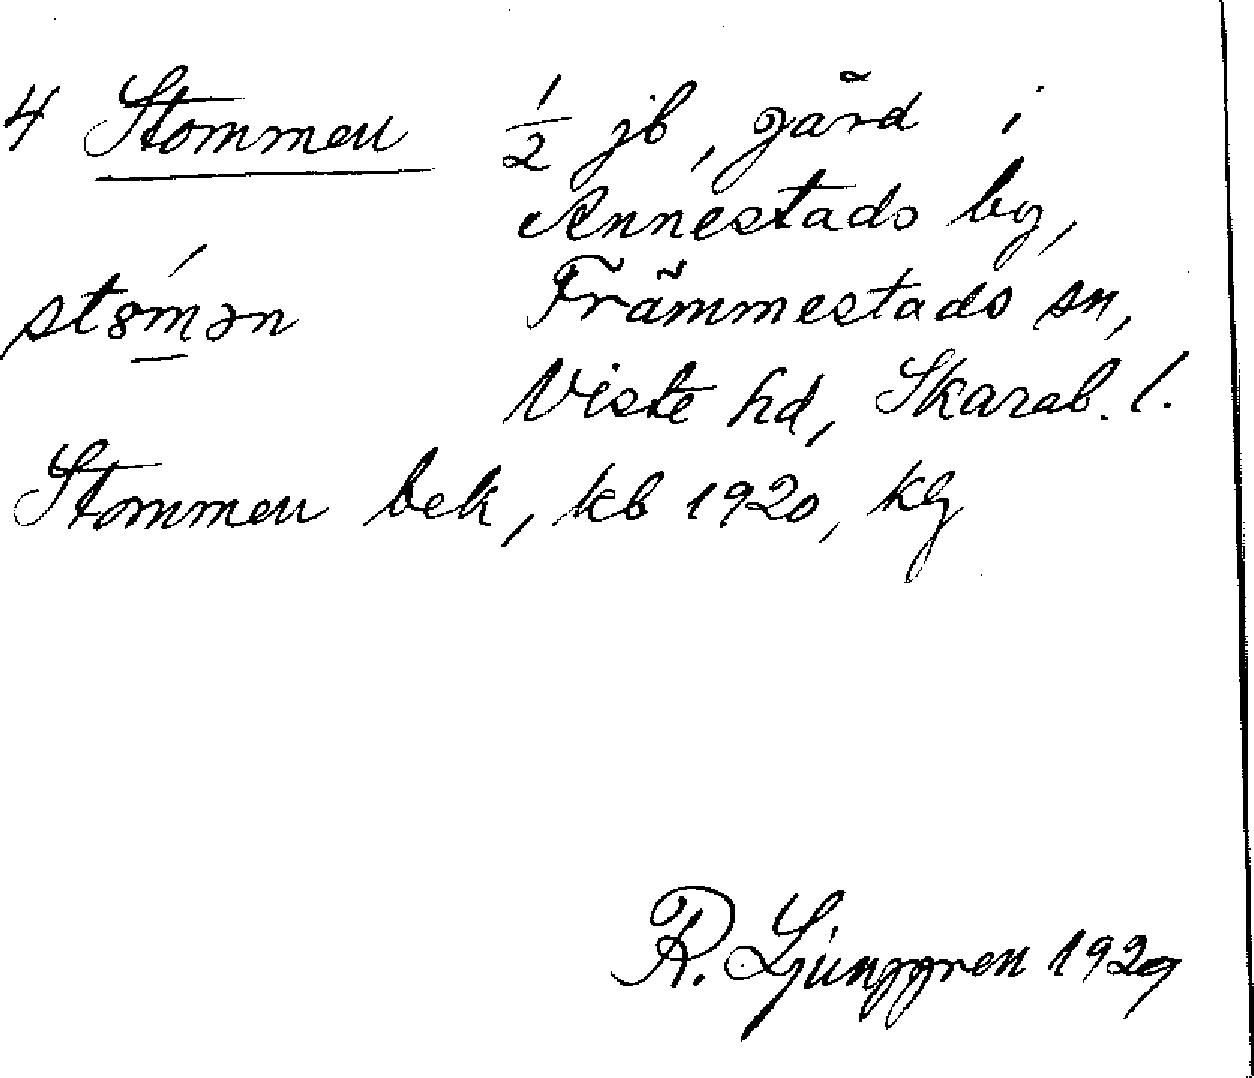 4 Stommen 1/2 jb, gård i
Annestads by,
Främmestads sn,
st8́mən
Viste hd, Skarab. l.
Stommen bek, kb 1920, kg
R. Ljunggren 1929